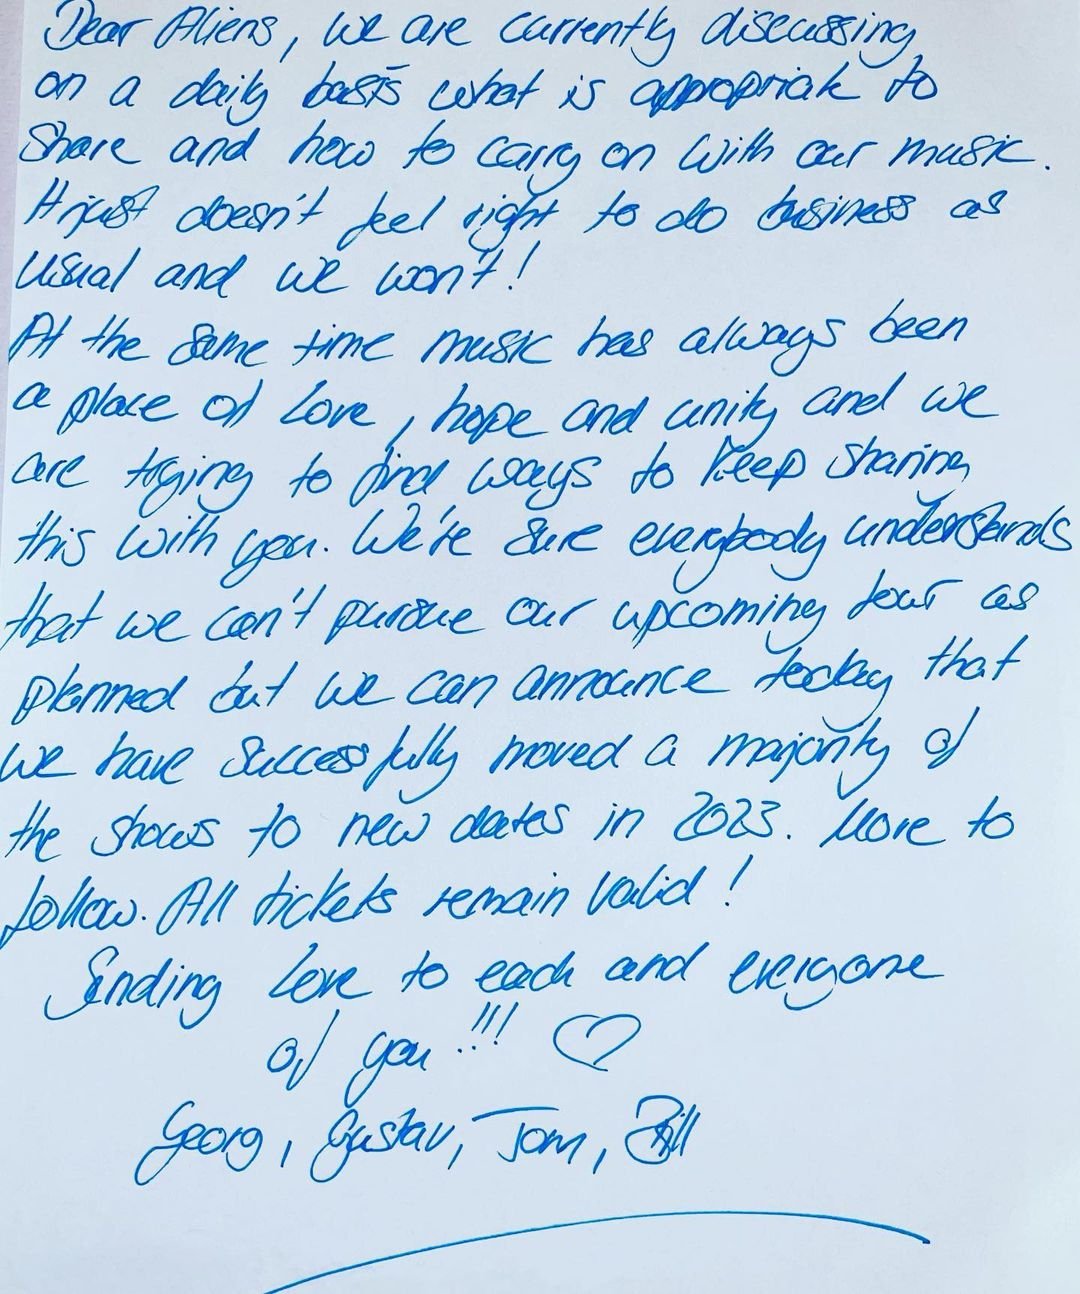 Dear Aliens, we are currently discussing
on a daily basis what is appropriate to
share and how to carry on with our music.
It just doesn't feel right to do business as
usual and we won't!
At the same time music has always been
a place of love, hope and unity and we
are trying to find ways to keep sharing
this with you. We're sure everybody understands
that we can't pursue our upcoming tour as
planned but we can announce today that
we have successfully moved a majority of
the shows to new dates in 2023. More to
follow. All tickets remain valid!
Sending love to each and everyone
of you!!! ♡
Georg, Gustav, Tom, Bill